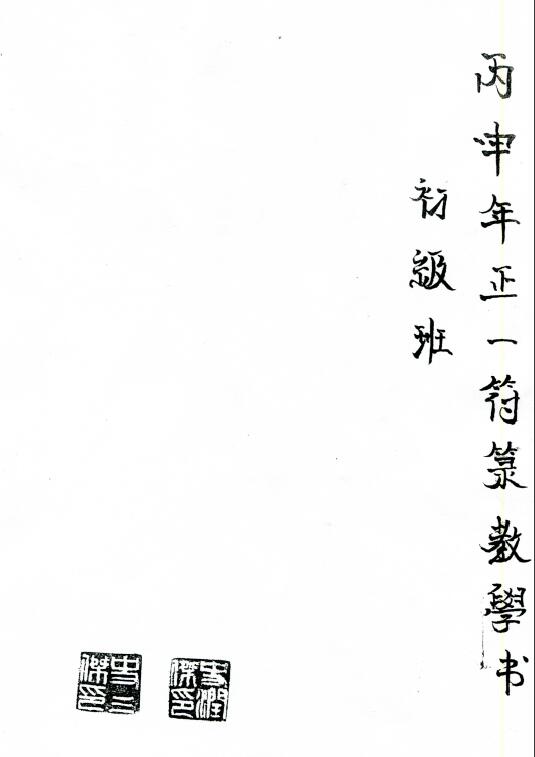 丙申年正一符箓教學书
初級班